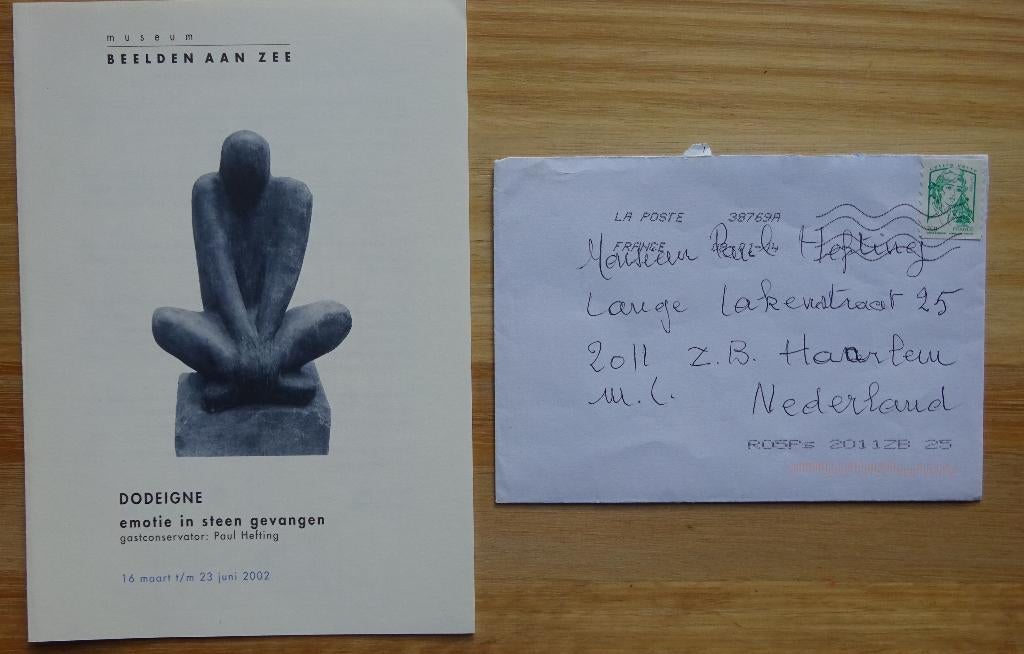 museum
BEELDEN AAN ZEE
DODEIGNE
emotie in steen gevangen
gastconservator: Paul Hefting
16 maart t/m 23 juni 2002
LA POSTE 38769A
FRANCE
Monsieur Paul Hefting
Lange Lakenstraat 25
2011 Z.B. Haarlem
Nederland
ROSPs 2011ZB 25